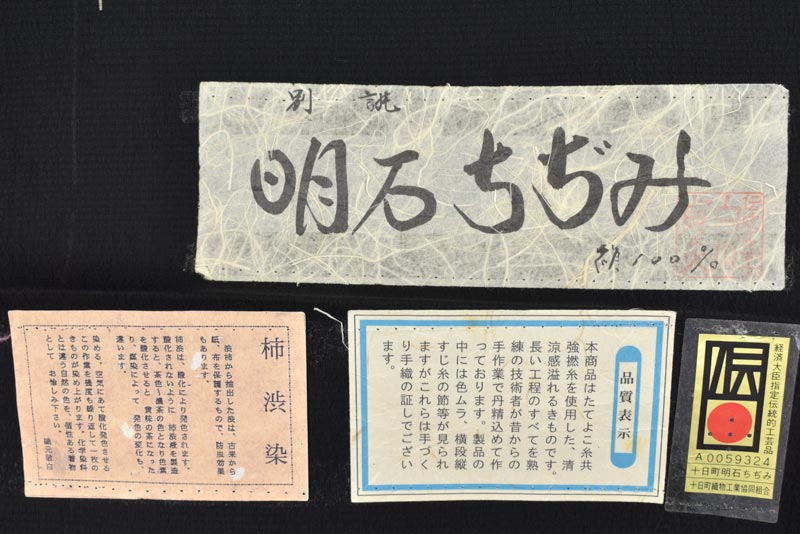 別誂
明石ちぢみ
絹100%
柿渋染
渋柿から抽出した渋は、古来から
紙、布を保護するもので、防虫効果
もあります。
柿渋は、酸化により発色されます。
酸化されないように 柿渋液を製造
すると、茶色～薄茶の色となり色素
を酸化させると 黄味の茶になった
り、媒染によって 発色の変化も、
違います。
染める、空気にあて酸化発色させる
この作業を幾度も繰り返して一枚の
きものが染め上がります。化学染料
とは違う自然の色を、個性ある着物
として お愉しみ下さい。
織元敬白
品質表示
本商品はたてよこ糸共
強撚糸を使用した、清
涼感溢れるきものです。
長い工程のすべてを熟
練の技術者が昔からの
手作業で丹精込めて作
っております。製品の
中には色ムラ、横段縦
すじ糸の節等が見られ
ますがこれらは手づく
り手織の証しでござい
ます。
経済大臣指定伝統的工芸品
伝
A0059324
十日町明石ちぢみ
十日町織物工業協同組合